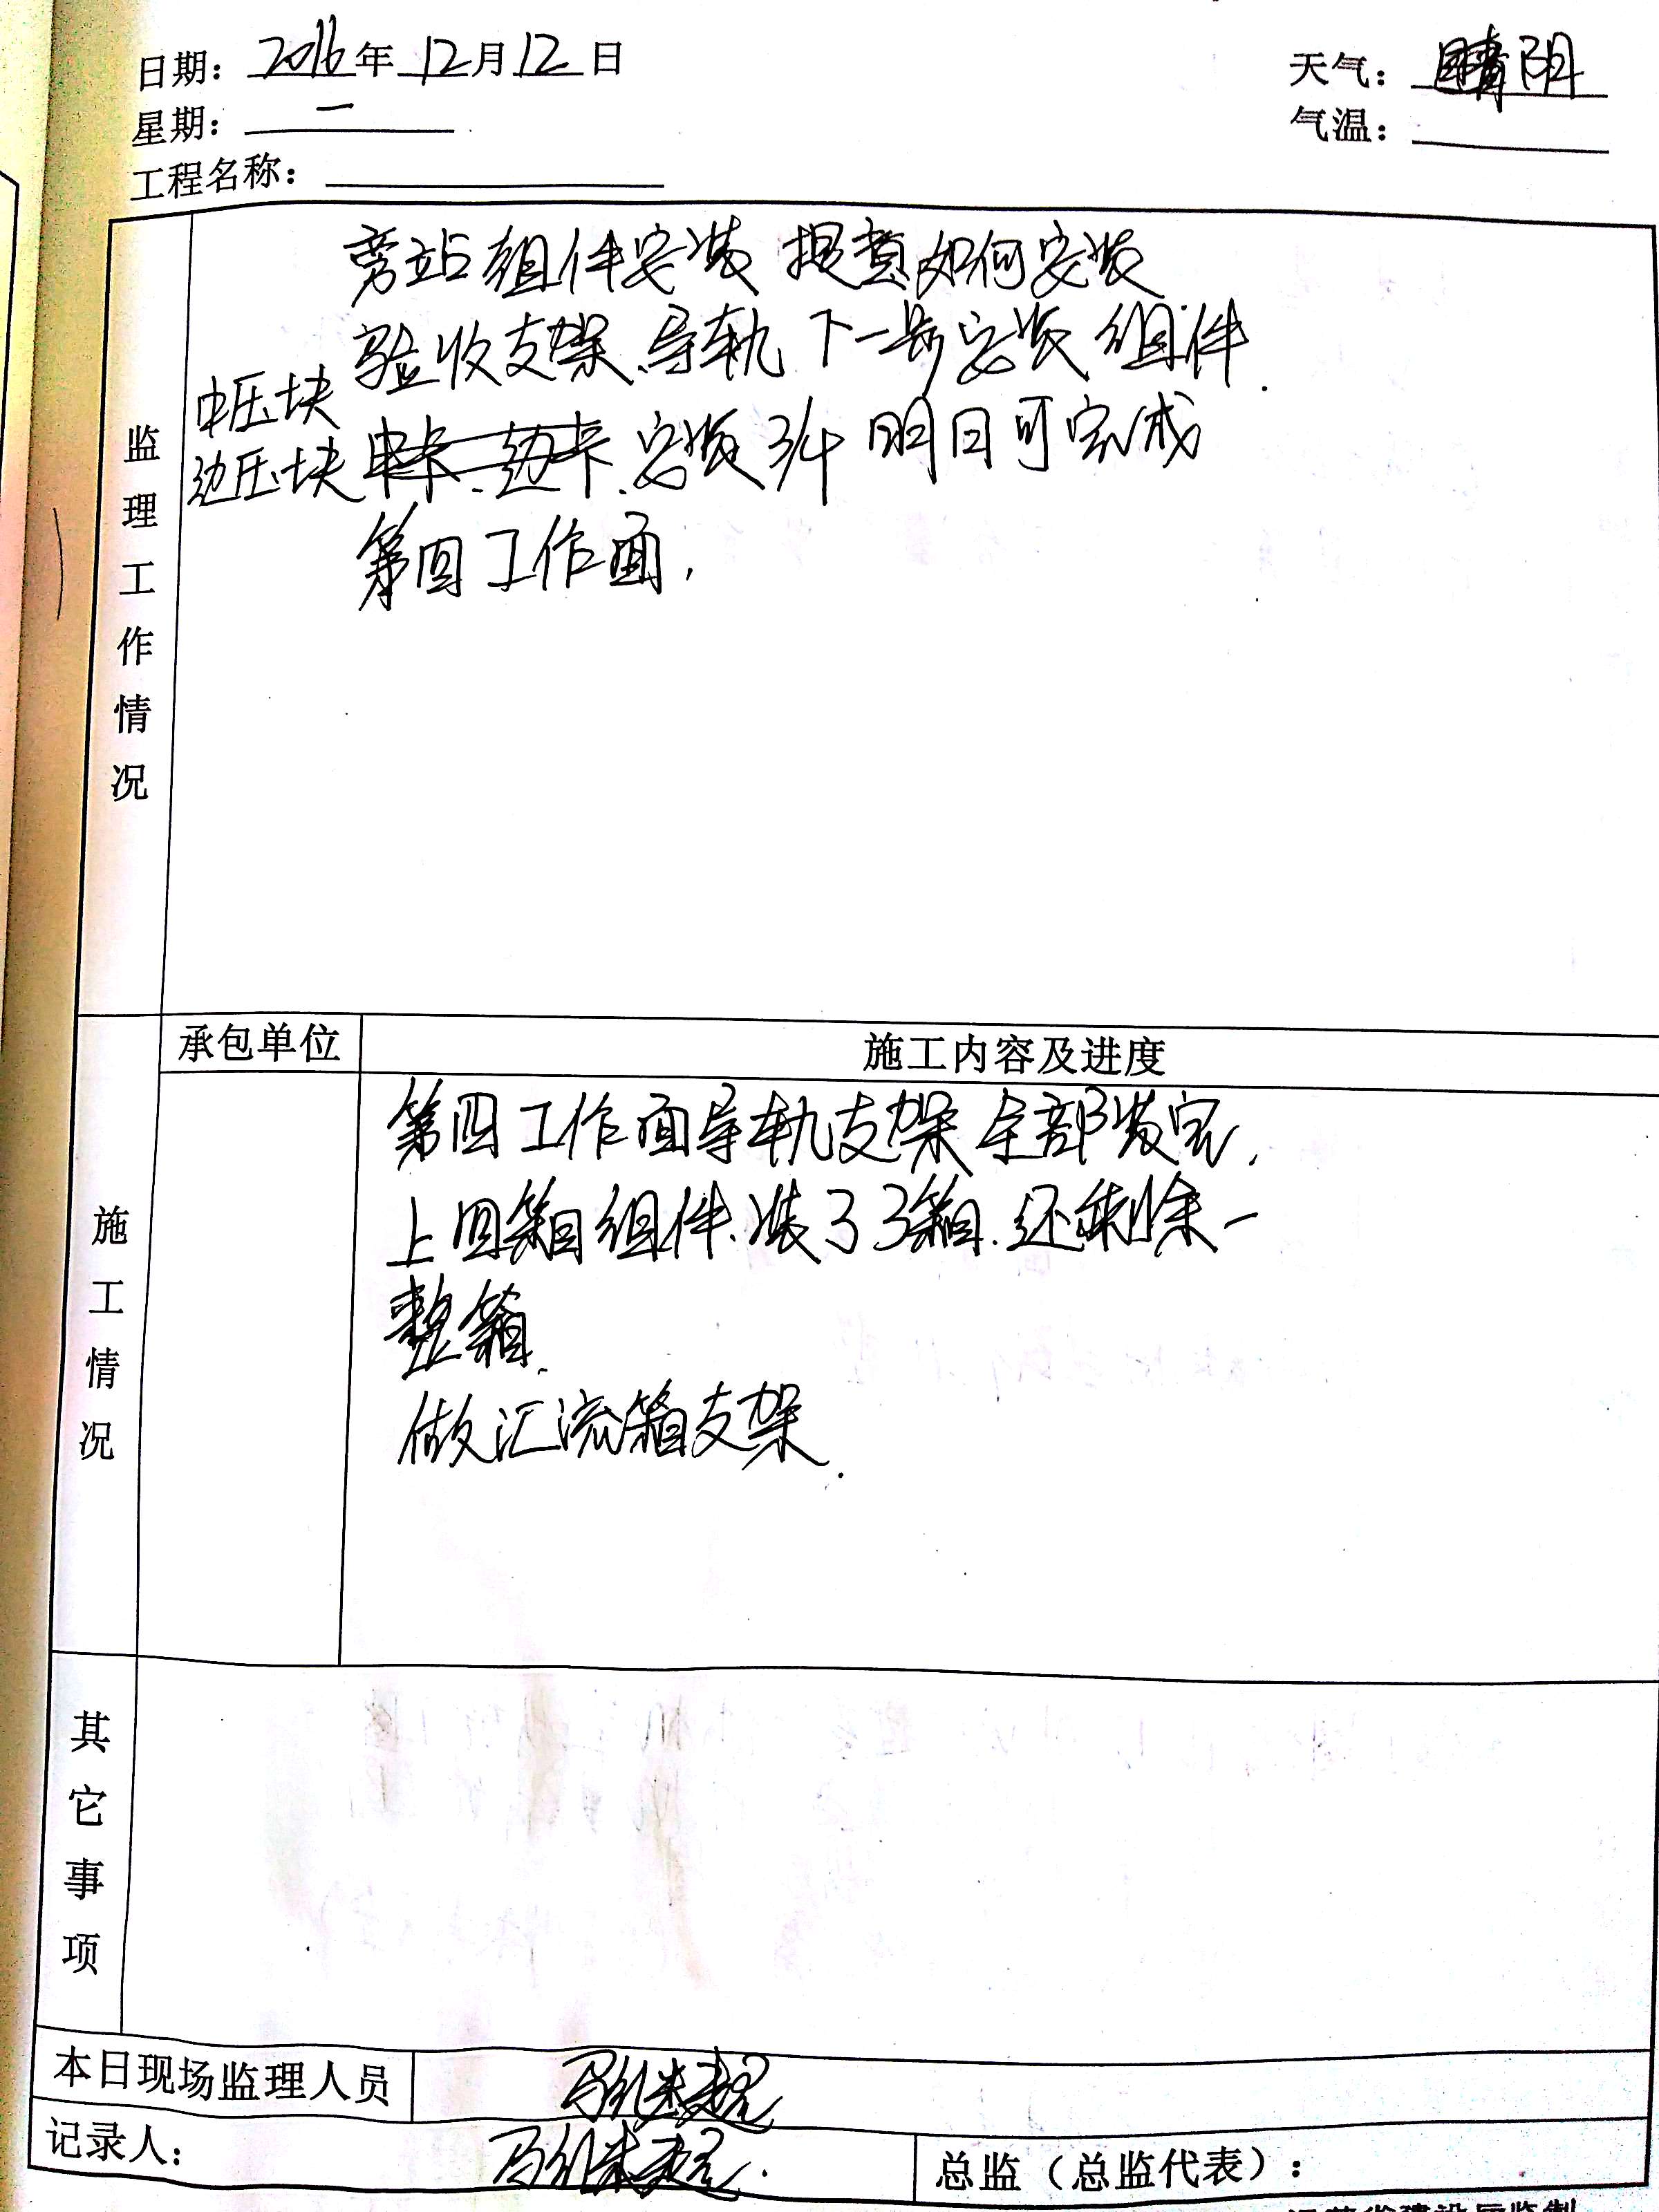 日期：2016年12月12日
天气：晴阴
星期：一
气温：
工程名称：
监理工作情况
旁站组件安装 提真如何安装
验收支架、导轨 下一步安装 组件.
中压块
边压块 中卡、边卡、安装3/4 明日可完成
第四工作面.
施工情况
承包单位
施工内容及进度
第四工作面导轨支架全部装完.
上四箱组件、装了3箱.还剩余一
整箱.
做汇流箱支架.
其它事项
本日现场监理人员
记录人：
总监（总监代表）：